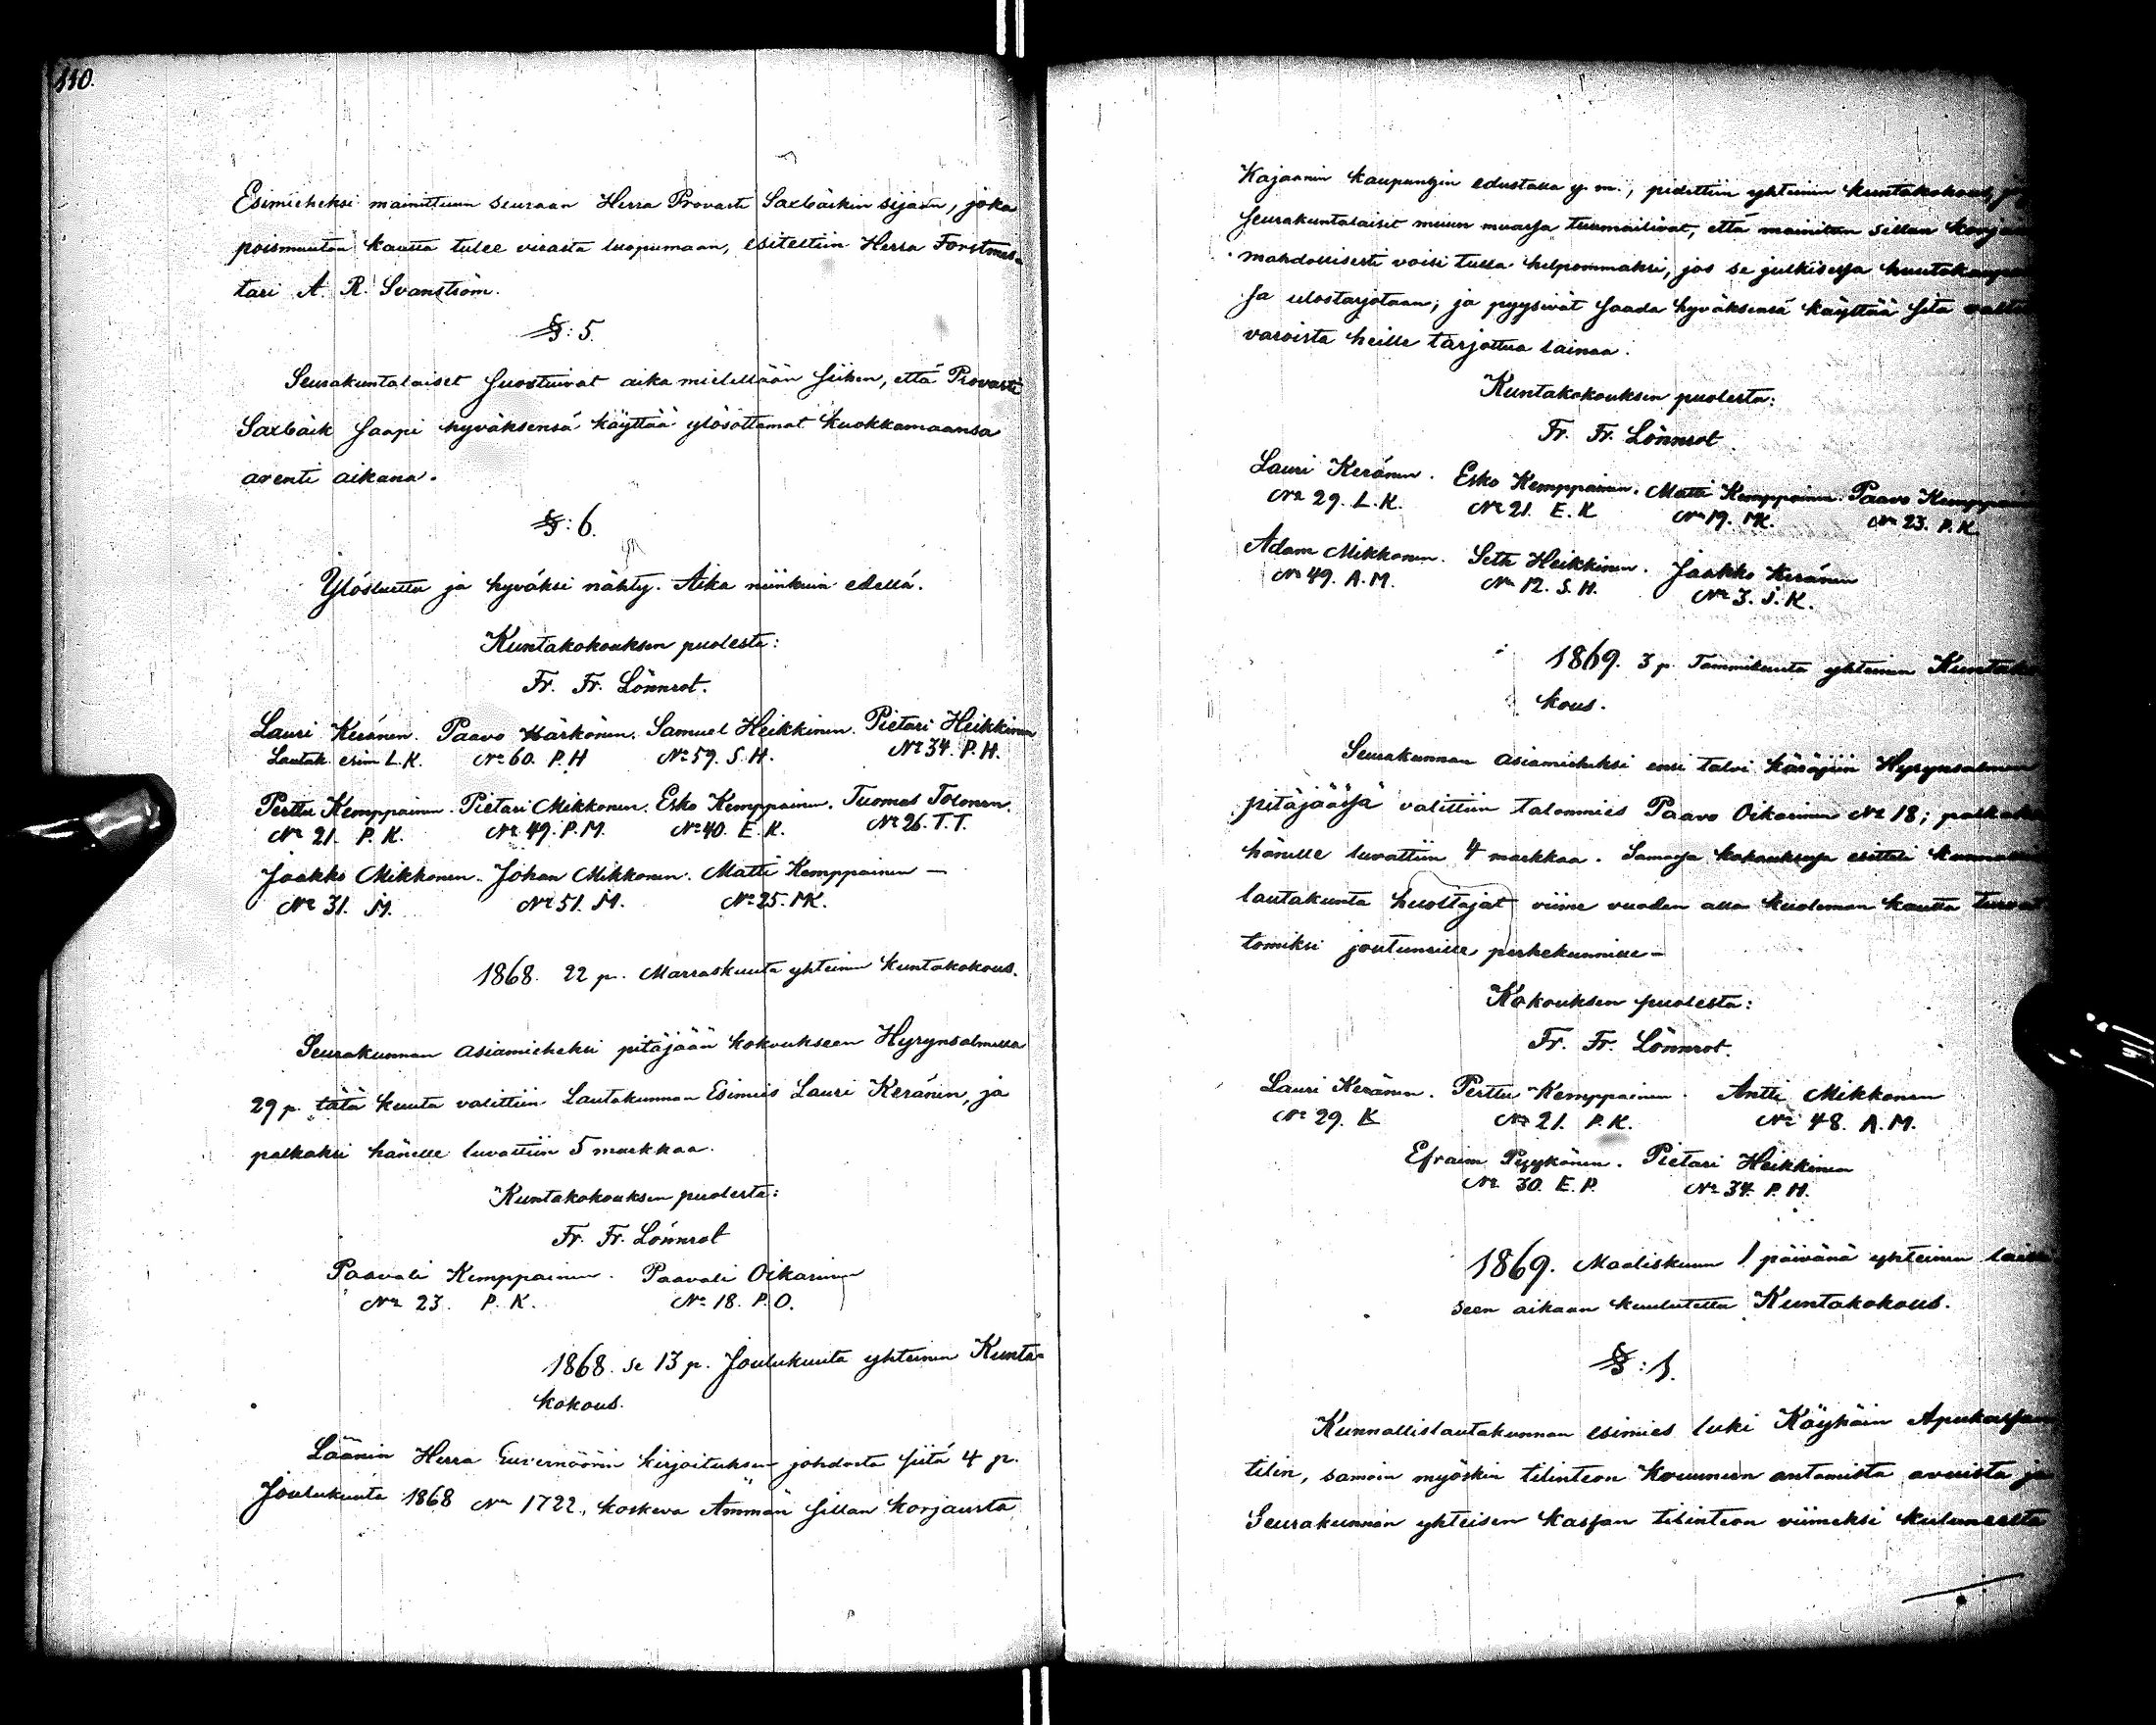 110.
Esimieheksi mainittuun seuraan Herra Provasti Saxbäckin sijaan, joka
poismuuton kautta tulee virasta luopumaan, esiteltiin Herra Forstmes-
tari A. R. Svanström.
§: 5.
Seurakuntalaiset suostuivat aika mielellään siihen, että Provasti
Saxbäck saapi hyväksensä käyttää ylösottamat kuokkamaansa
arenti aikana.
§: 6.
Ylösluettu ja hyväksi nähty. Aika niinkuin edellä.
Kuntakokouksen puolesta:
Fr. Fr. Lönnrot.
Lauri Keränen. Paavo Härkönen. Samuel Heikkinen. Pietari Heikkinen
Lautak. esim L.K. No 60. P.H No 59. S.H. No 34. P.H.
Perttu Kemppainen. Pietari Mikkonen. Esko Kemppainen. Tuomas Tolonen.
No 21. P.K. No 49. P.M. No 40. E.K. No 26. T.T.
Jaakko Mikkonen. Johan Mikkonen. Matti Kemppainen —
No 31. JM. No 51. JM. No 25. MK.
1868. 22 p. Marraskuuta yhteinen kuntakokous.
Seurakunnan asiamieheksi pitäjään kokoukseen Hyrynsalmella
29 p. tätä kuuta valittiin Lautakunnan Esimies Lauri Keränen, ja
palkaksi hänelle luvattiin 5 markkaa.
Kuntakokouksen puolesta:
Fr. Fr. Lönnrot
Paavali Kemppainen. Paavali Oikarinen
No 23. P.K. No 18. P.O.
1868. se 13 p. Joulukuuta yhteinen Kunta-
kokous.
Läänin Herra Guvernöörin kirjoituksen johdosta siitä 4 p.
Joulukuuta 1868 No 1722, koskeva Ämmän sillan korjausta
Kajaanin kaupungin edustalla y. m., pidettiin yhteinen kuntakokous, jos
seurakuntalaiset muun muassa tuumailivat, että mainitun sillan
mahdollisesti voisi tulla helpommaksi, jos se julkisessa
sa ulostarjotaan; ja pyysivät saada hyväksensä käyttää sitä
varoista heille tarjottua lainaa.
Kuntakokouksen puolesta:
Fr. Fr. Lönnrot
Lauri Keränen. Esko Kemppainen. Matti Kemppainen. Paavo Kemppainen
No 29. L.K. No 21. E.K No 19. MK. No 23. P.K.
Adam Mikkonen. Seth Heikkinen. Jaakko Keränen
No 49. A.M. No 12. S.H. No 3. J.K.
1869. 3 p. Tammikuuta yhteinen Kuntako
kous.
Seurakunnan asiamieheksi ensi talvi käräjiin Hyrynsalmen
pitäjäässä valittiin talonmies Paavo Oikarinen No 18; palkaksi
hänelle luvattiin 4 markkaa. Samassa kokouksessa esitteli
lautakunta huoltajat viime vuoden alla kuoleman kautta turvat
tomiksi joutuneille perhekunnille —
Kokouksen puolesta:
Fr. Fr. Lönnrot.
Lauri Keränen. Perttu Kemppainen. Antti Mikkonen
No 29. K No 21. P.K. No 48. A.M.
Efraim Pyykönen. Pietari Heikkinen
No 30. E.P. No 34. P.H.
1869. Maaliskuun 1 päivänä yhteinen
seen aikaan kuulutettu Kuntakokous.
§: 1.
Kunnallislautakunnan esimies luki Köyhäin Apukassan
tilin, samoin myöskin tilinteon Kruunun antamista avuista ja
Seurakunnan yhteisen kassan tilinteon viimeksi kuluneelta